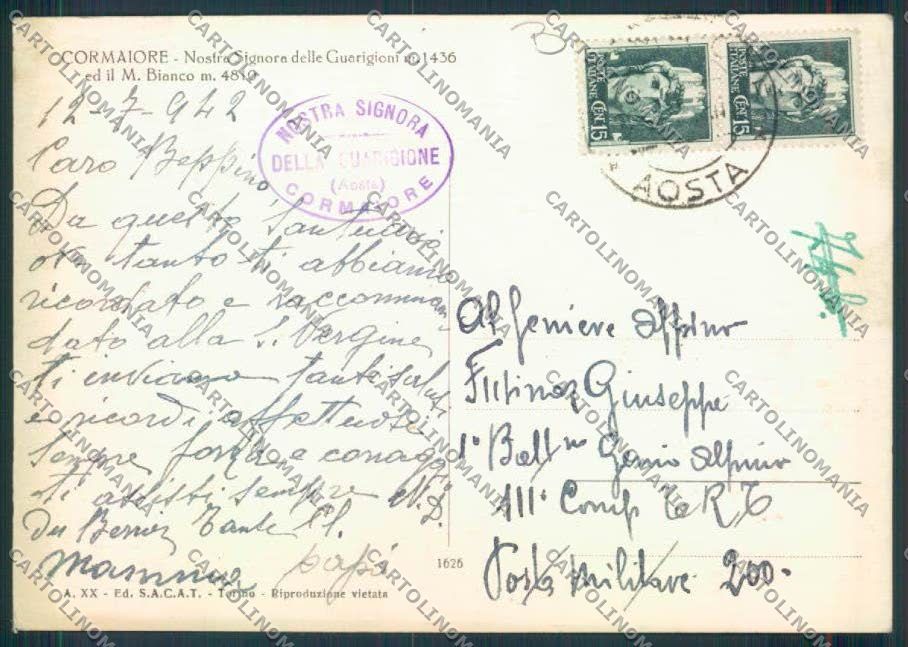 CORMAIORE - Nostra Signora delle Guarigioni m. 1436
ed il M. Bianco m. 4810
12-7-942
Caro Beppino
Da questo Santuario
ove tanto ti abbiamo
ricordato e raccoman
dato alla S. Vergine
ti inviamo tanti saluti
e ricordi affettuosi
Sempre forza e coraggio
ti assisti sempre N. S.
mamma papà
A. XX - Ed. S.A.C.A.T. - Torino - Riproduzione vietata
1626
NOSTRA SIGNORA
DELLA GUARIGIONE
(Aosta)
CORMAIORE
POSTE ITALIANE CENT. 15
POSTE ITALIANE CENT. 15
AOSTA
Al Geniere Alpino
Giuseppe
1° Batt Genio Alpino
III° Comp RT
Posta militare 200
CARTOLINOMANIA